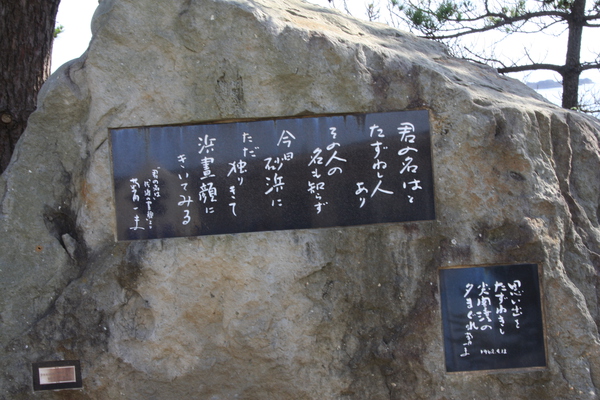 君の名はと
たずねし人あり
その人の
名も知らず
今日砂浜に
ただ独りきて
浜晝顔に
きいてみる
「君の名は」
菊田一夫
思い出を
たずねきし
尖閣湾の
夕まぐれ